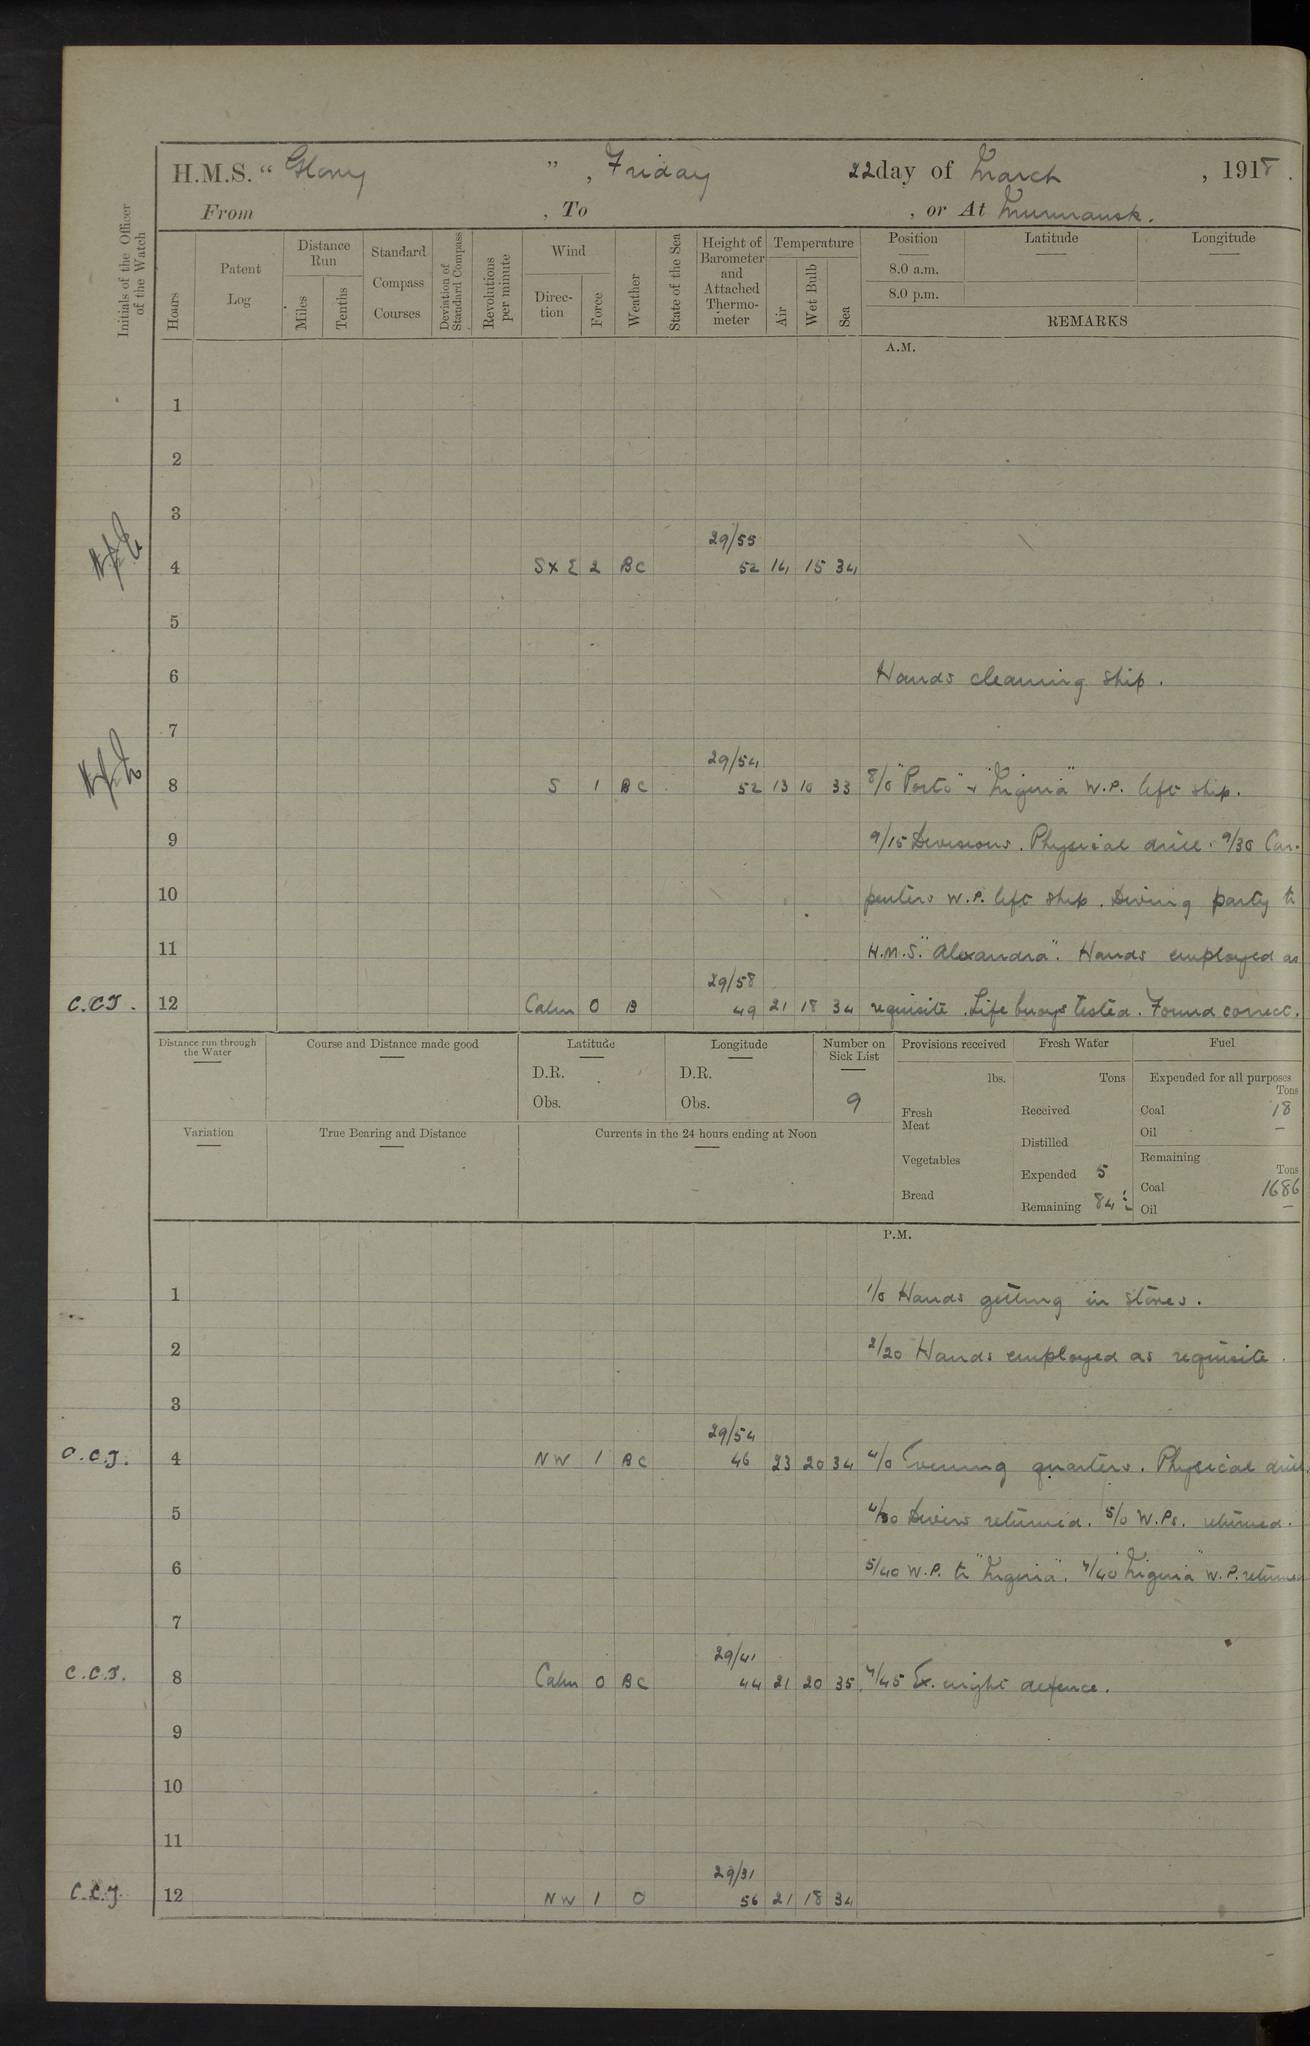 H.M.S. "Glory", Friday 22 day of March, 1918.
From , To , or At Murmansk.
Initials of the Officer of the Watch
Hours
Patent Log
Distance Run
Miles
Tenths
Standard Compass Courses
Deviation of Standard Compass
Revolutions per minute
Wind
Direction
Force
Weather
State of the Sea
Height of Barometer and Attached Thermometer
Temperature
Air
Wet Bulb
Sea
Position Latitude Longitude
8.0 a.m.
8.0 p.m.
REMARKS
A.M.
1
2
3
29/55
4 S x E 2 BC 52 14 15 34
5
6 Hands cleaning ship.
7
29/54
8 S 1 BC 52 13 10 33 8/0 "Porto" + "Nigeria" W.P. left ship.
9 9/15 Divisions. Physical drill. 9/30 Car-
10 penters W.P. left ship. Diving party to
11 H.M.S. "Alexandra". Hands employed as
29/58
C.C.J. 12 Calm 0 B 49 21 18 34 requisite. Life buoys tested. Found correct.
Distance run through the Water
Course and Distance made good
Latitude
D.R.
Obs.
Longitude
D.R.
Obs.
Number on Sick List
9
Variation
True Bearing and Distance
Currents in the 24 hours ending at Noon
Provisions received
lbs.
Fresh Meat
Vegetables
Bread
Fresh Water
Tons
Received
Distilled
Expended 5
Remaining 84½
Fuel
Expended for all purposes
Tons
Coal 18
Oil –
Remaining
Tons
Coal 1686
Oil –
P.M.
1 1/0 Hands getting in stores.
2 2/20 Hands employed as requisite.
3
29/54
C.C.J. 4 NW 1 BC 46 23 20 34 4/0 Evening quarters. Physical drill.
5 4/30 Divers returned. 5/0 W.Ps. returned.
6 5/40 W.P. to "Nigeria". 7/40 "Nigeria" W.P. returned
7
29/41
C.C.J. 8 Calm 0 BC 44 21 20 35 7/45 Ex. night defence.
9
10
11
29/31
C.C.J. 12 NW 1 O 56 21 18 34